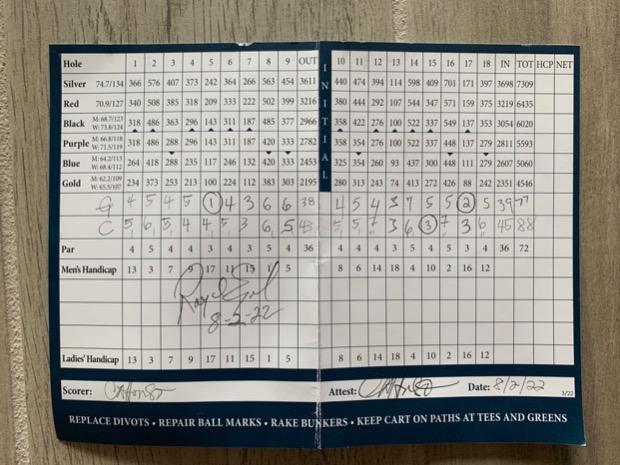 Hole 1 2 3 4 5 6 7 8 9 OUT 10 11 12 13 14 15 16 17 18 IN TOT HCP NET
INITIAL
Silver 74.7/134 366 576 407 373 242 364 266 563 454 3611 440 474 394 114 598 409 701 171 397 3698 7309
Red 70.9/127 340 508 385 318 209 333 222 502 399 3216 380 444 292 107 544 347 571 159 375 3219 6435
Black M: 68.7/123 W: 73.8/124 318 486 363 296 143 311 187 485 377 2966 358 422 276 100 522 337 549 137 353 3054 6020
Purple M: 66.8/118 W: 71.5/119 318 486 288 296 143 311 187 420 333 2782 358 354 276 100 522 337 448 137 279 2811 5593
Blue M: 64.2/113 W: 68.4/112 264 418 288 235 117 246 132 420 333 2453 325 354 260 93 437 300 448 111 279 2607 5060
Gold M: 62.2/109 W: 65.5/107 234 373 253 213 100 224 112 383 303 2195 280 313 243 74 413 272 426 88 242 2351 4546
G 4 5 4 5 1 4 3 6 6 38 4 5 4 3 7 5 5 2 5 39 77
C 5 6 5 4 4 5 3 6 5 43 5 5 7 3 6 3 7 3 6 45 88
Par 4 5 4 4 3 4 3 5 4 36 4 4 4 3 5 4 5 3 4 36 72
Men's Handicap 13 3 7 9 17 11 15 1 5 8 6 14 18 4 10 2 16 12
8-2-22
Ladies' Handicap 13 3 7 9 17 11 15 1 5 8 6 14 18 4 10 2 16 12
Scorer: Attest: Date: 8/2/22 3/22
REPLACE DIVOTS • REPAIR BALL MARKS • RAKE BUNKERS • KEEP CART ON PATHS AT TEES AND GREENS